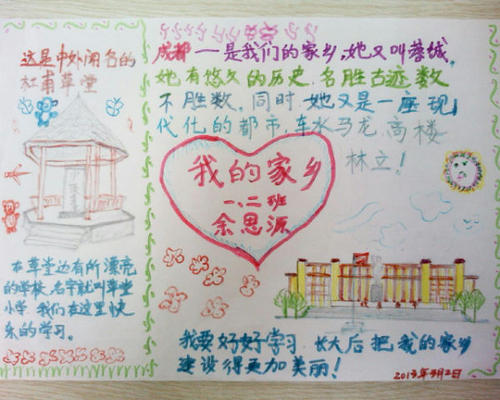 这是中外闻名的
杜甫草堂
在草堂边有所漂亮
的学校,名字叫
小学,我们在这里快
乐的学习。
成都——是我们的家乡,她又叫蓉城。
她有悠久的历史,名胜古迹数
不胜数,同时,她又是一座现
代化的都市,车水马龙,高楼
林立!
我的家乡
一、二班
余思源
我要好好学习,长大后把我的家乡
建设得更加美丽!
2013年3月2日